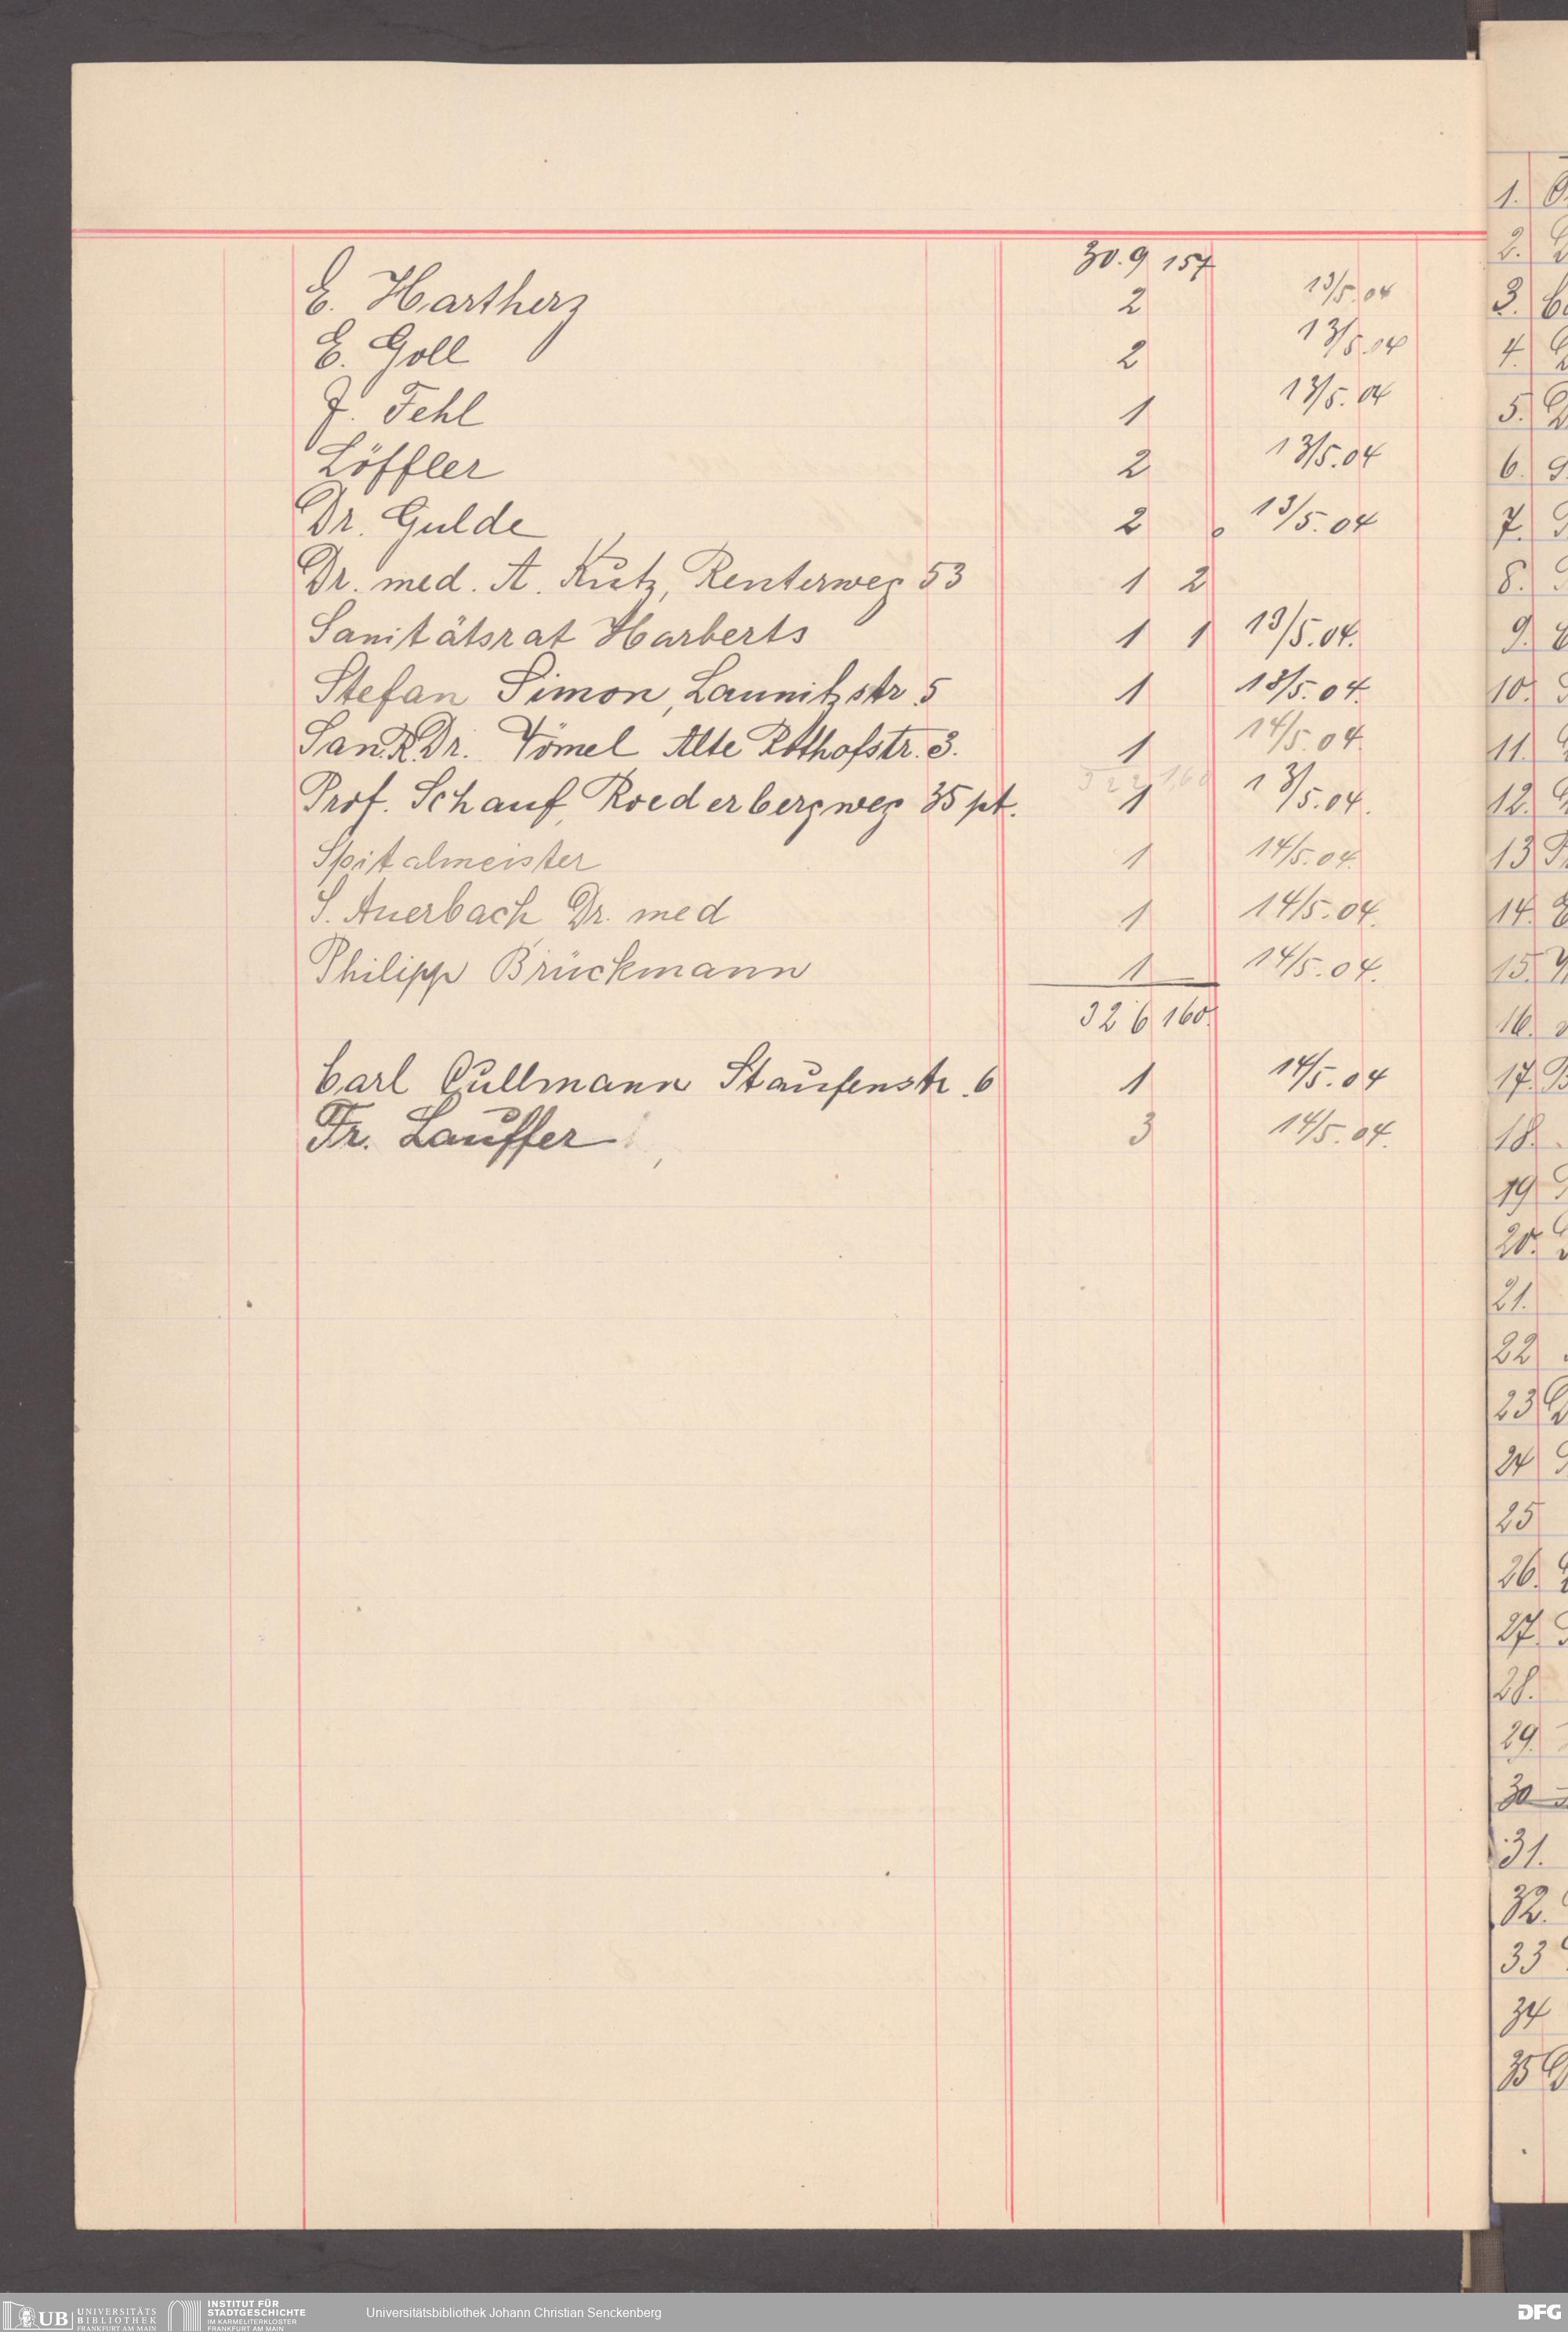 30.9 157
E. Hartherz 2 13/5.04
E. Goll 2 13/5.04
J. Fehl 1 13/5.04
Löffler 2 13/5.04
Dr. Gulde 2 13/5.04
Dr. med. A. Kutz, Reuterweg 53 1 2
Sanitätsrat Harberts 1 1 13/5.04.
Stefan Simon, Launitzstr. 5 1 13/5.04.
San.R.Dr. Vömel Alte Rothofstr. 3. 1 14/5.04
322 160
Prof. Schauf, Roederbergweg 35 pt. 1 13/5.04.
Spitalmeister 1 14/5.04.
S. Auerbach Dr. med 1 14/5.04.
Philipp Brückmann 1 14/5.04.
326 160.
Carl Cullmann Staufenstr. 6 1 14/5.04
Fr. Lauffer 3 14/5.04.
1.
2.
3.
4.
5.
6.
7.
8.
9.
10.
11.
12.
13
14.
15.
16.
17.
18.
19
20.
21.
22
23
24
25
26.
27.
28.
29.
30
31.
32.
33
34
35
UB UNIVERSITÄTS
BIBLIOTHEK
FRANKFURT AM MAIN
INSTITUT FÜR
STADTGESCHICHTE
IM KARMELITERKLOSTER
FRANKFURT AM MAIN
Universitätsbibliothek Johann Christian Senckenberg
DFG